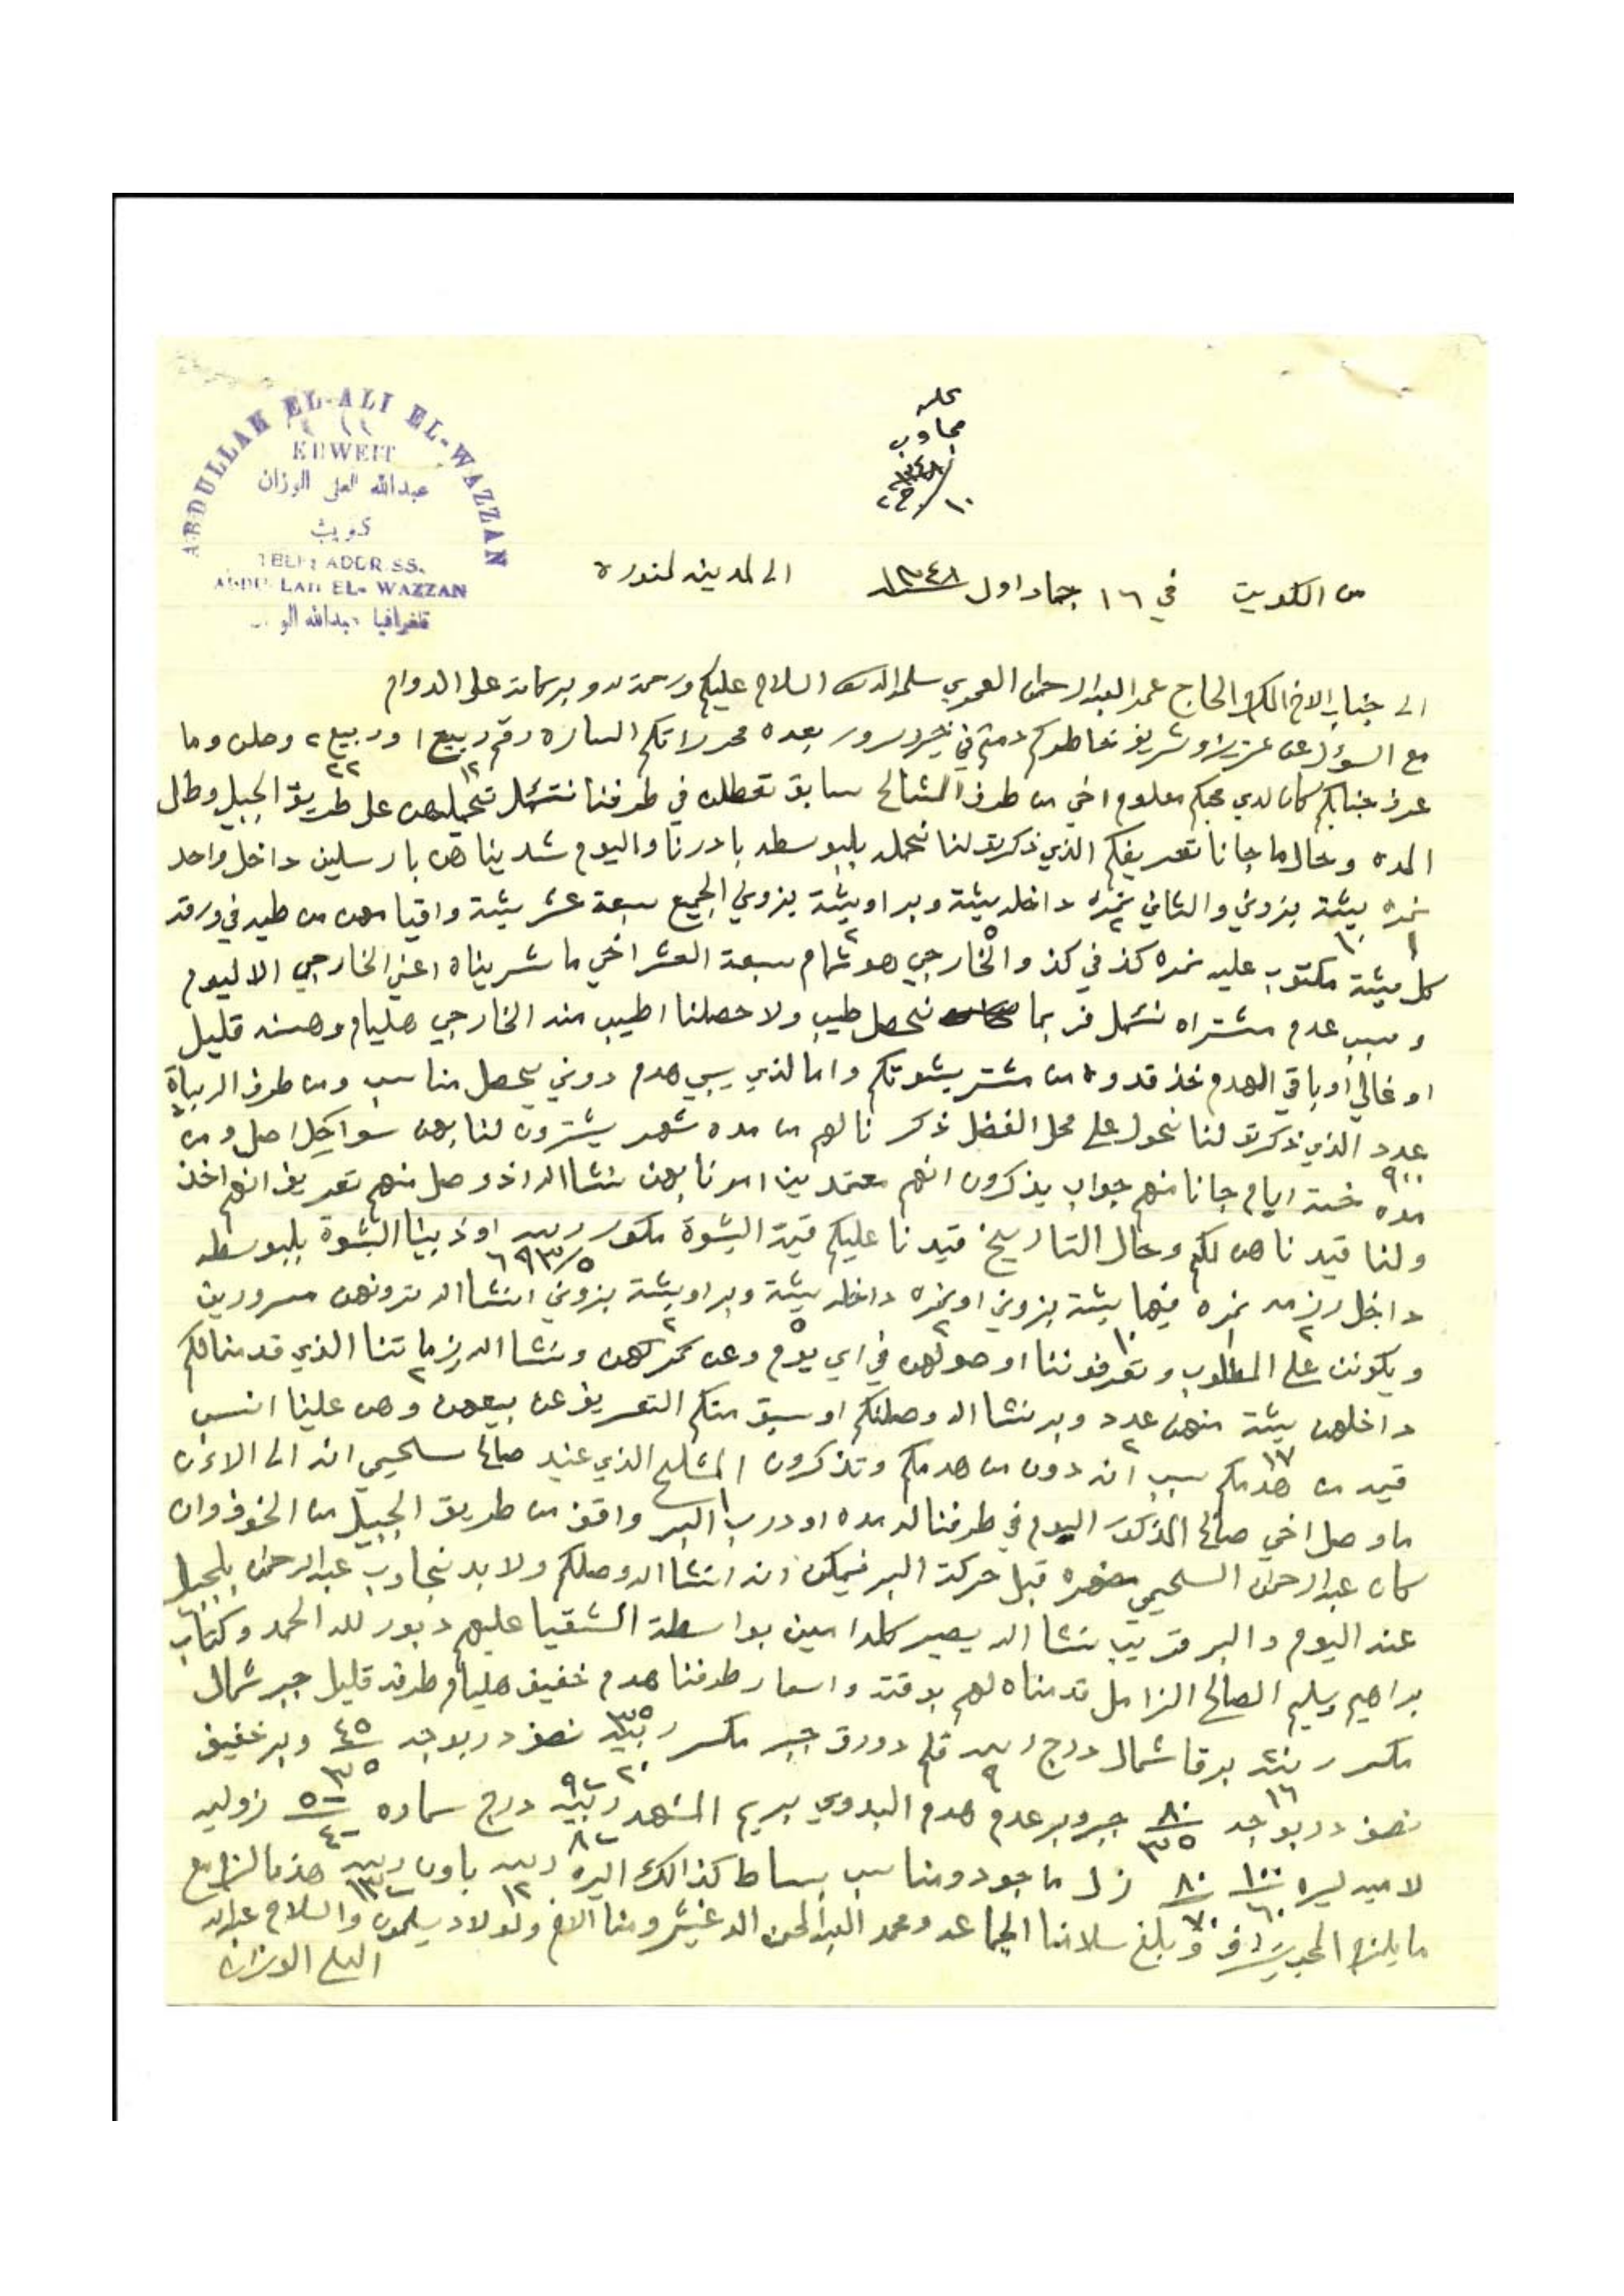 ABDULLAH EL-ALI EL-WAZZAN
KUWEIT
عبدالله العلي الوزان
كويت
TELE: ADDRESS.
ABDULLAH EL- WAZZAN
تلغرافيا عبدالله الو
محله
مجاوب
١٠ / ج٢ / ١٣٤٨
من الكويت في ١٦ جماد اول ١٣٤٨ الى لمدينه لمنوره
الى جناب الاخ المكرم الحاج حمد العبدالرحمن العموي سلمه الله السلام عليكم ورحمة الله وبركاته على الدوام
مع السؤال عن عزيز وشريف خاطركم دمتم في خير وسرور بعده محرراتكم الساره رقم ١٢ ربيع ١ و ٢٢ ربيع ٢ وصلن وما
عرف جنابكم كان لدي محبكم معلوم اخي من طرف المشالح سابق تعطلن في طرفنا نتأمل تحميلهن على طريق الجبيل وطال
المده وحال ما جانا تعريفكم الذي ذكرت لنا نحمله بلبوسطه بادرنا واليوم شديناهن بارسلين داخل واحد
نمره ١ بيشة ١٠ بزوني والثاني نمره ٢ داخله بيشة ٥ وبر اوبيشة ٢ بزوني الجميع سبعة عشر بيشة واقيامهن من طيه في ورقه
كل بيشة مكتوب عليه نمره كذ في كذ والخارجي هو تمام سبعة العشر اخي ما شريناه اعني الخارجي الا ليوم
وسبب عدم مشتراه نتأمل فربما نحصل طيب ولا حصلنا اطيب منه الخارجي هليام وهسنه قليل
او غالي اوباقي الهدم خذ قدوه من مشتر بشوتكم واما لذي يبي هدم دوني يحصل مناسب ومن طرف الربيات
عدد ٩٠٠ الذي ذكرت لنا نحول على محل الفضل ذكرنا لهم من مده شهر يشترون لنا بهن سواحل اصل ومن
مده خمسة ايام جانا منهم جواب يذكرون انهم معتمدين امرنا بهن نشالله اذ وصل منهم تعريف انهم اخذ
ولنا قيدناهن لكم وحال التاريخ قيدنا عليكم قيمة البشوت مكور ربيه ٦٩٣/٥ او ذبينا البشوت بلبوسطه
داخل رزمه ٢ نمره ١ فيها بيشة ١٠ بزوني او نمره ٢ داخله بيشة ٥ وبر اوبيشة ٢ بزوني انشالله ترونهن مسرورين
ويكونن على المطلوب وتعرفوننا اوصولهن في اي يوم وعن كمركهن ونشالله رزماتنا ٢ الذي قدمنا لكم
داخلهن بيشة ١٧ منهن عدد ٢ وبر نشالله وصلنكم اوسبق منكم التعريف عن بيعهن وهن علينا انسب
قيمه من هدمكم سبب انه دون من هدمكم وتذكرون المشلح ١ الذي عند صالح سلحيمي انه الى الاءن
ما وصل اخي صالح المذكور اليوم في طرفنا له مده او درب البر واقف من طريق الجبيل من الخوف وان
كان عبدالرحمن السلحيمي قبل حركة البر فيمكن انه انشالله وصلكم ولا بد نجاوب عبدالرحمن بلجبيل
عنه اليوم والبر قريب نشالله يصير كله امين بواسطة الشقيا عليهم دبور لله الحمد وكتاب
براهيم وسليم الصالح الزامل قدمناه لهم بوقته واسعار طرفنا هدم خفيف هليام طرفه قليل جبر شمال
مكسر ربيه ١٦ برقا شمال درج ربيه ٩ قلم دورق جبر مكسر ربيه ٣٥ ٢٠ نصف دربوجه ٤٥ ٣٥ وبر خفيف
نصف دربوجه ٨٠ ٣٥ جبر وبر عدم هدم البدوي بريم المشهد ربيه ٩٠ ٨٠ درج سماره ٥٠ ٤٠ زوليه
لاميه ليره ١٠٠ ٦٠ ٨٠ ٧٠ زل ماجود ومناسب بساط كذالك اليره ربيه ١٢ باون ربيه ١٣ هذ مالزم مع
ما يلزم المحب يتشرف وبلغ سلامنا الجماعه ومحمد العبدالمحسن الدغيثر ومنا الاخ ولولاد يسلمون والسلام عبدالله
العلي الوزان